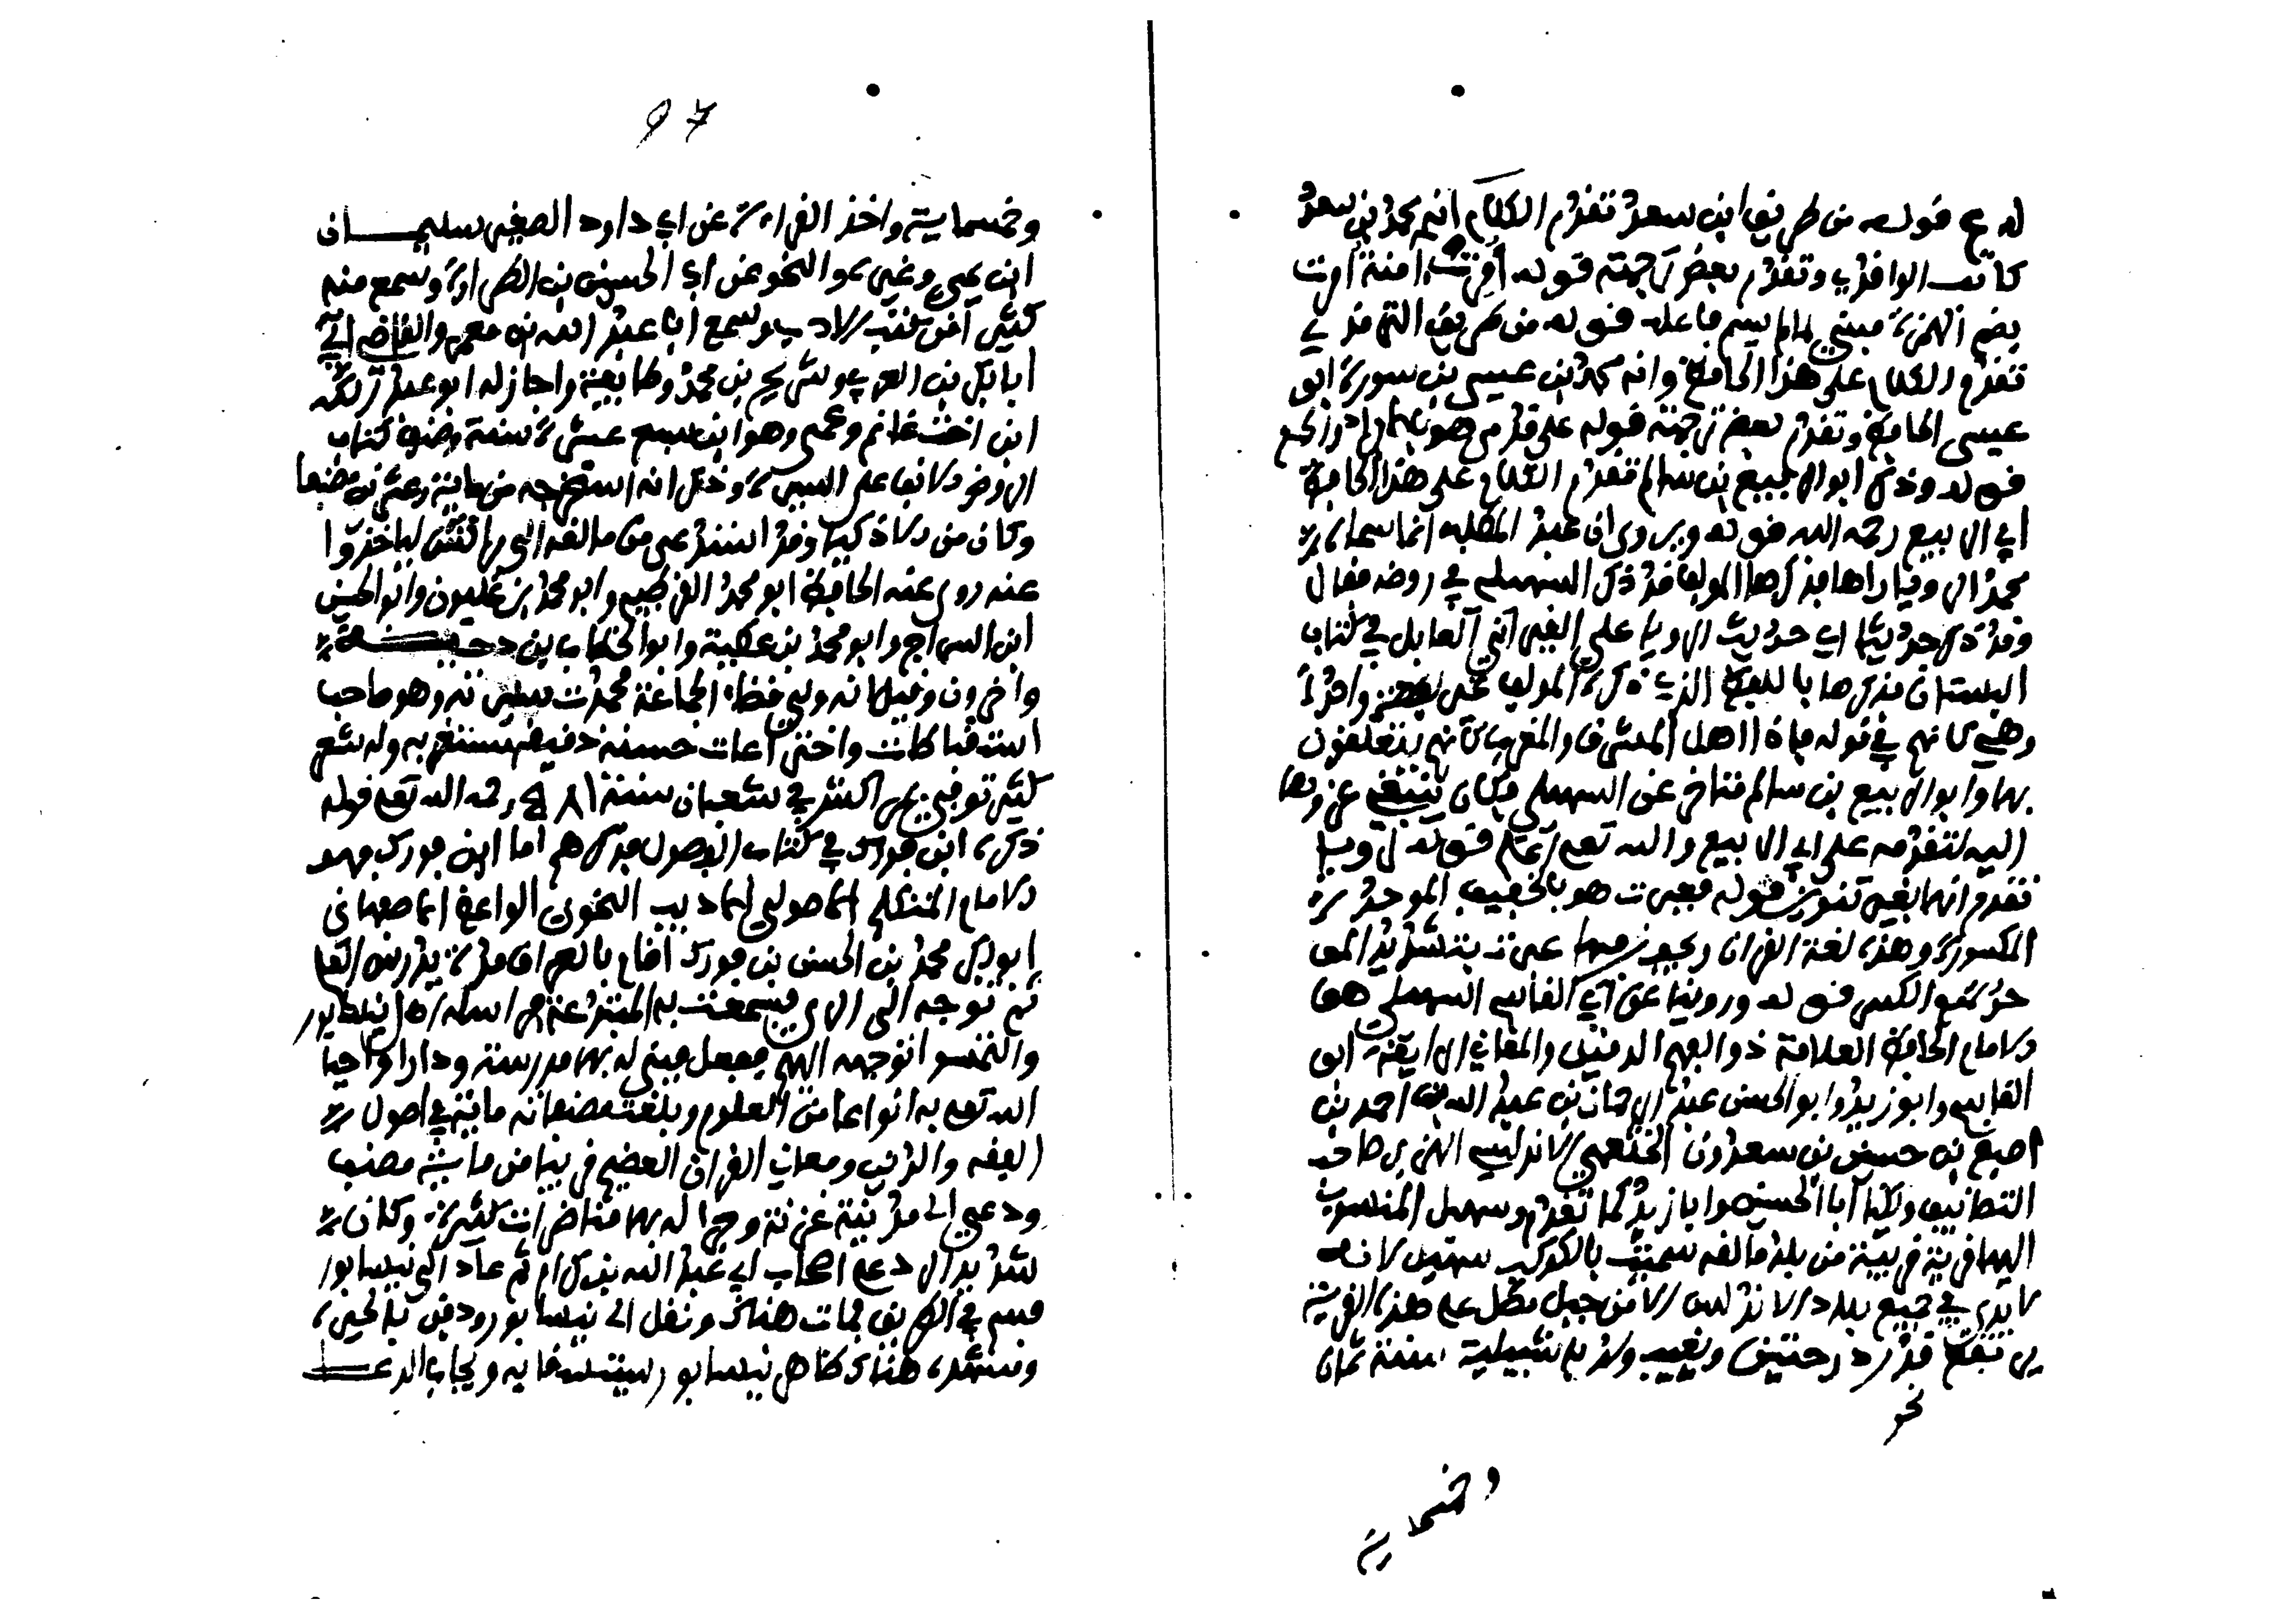 له ع قوله من طريق ابن سعد تقدم الكلام انه محمد بن سعد
كاتب الواقدي وتقدم بعض ترجمته قوله أمرت امنة أمرت
بضم الهمزة مبني لما لم يسم فاعله قوله من طريق الترمذي
تقدم الكلام على هذا الحافظ وانه محمد بن عيسى بن سورة ابو
عيسى الحافظ وتقدم بعض ترجمته قوله على قدمي هو
قوله وذكر ابو الربيع بن سالم تقدم الكلام على هذا الحافظ
ابي الربيع رحمه الله قوله ويروى ان عبد المطلب انما سماه
محمدا لرويا راها فذكرها المولف قد ذكر السهيلي في روضه فقال
وقد ذكر حديثا اي حديث الرويا علي القيرواني العابر في كتاب
البستان فذكرها باللفظ الذي ذكره المولف واحدة
وهي كانهم في قوله فاذا اهل المشرق والمغرب كانهم يتعلقون
بها وابو الربيع بن سالم متاخر عن السهيلي فكان ينبغي عزوها
اليه لتقدمه على ابي الربيع والله تعلى اعلم قوله لرويا
تقدم انها بغير تنوين قوله فعبرت هو بالتخفيف الموحدة
المكسورة وهذه لغة القران ويجوز فيها عبرت بتشديد المو
حدة مع الكسر قوله وروينا عن ابي القاسم السهيلي هو
الامام الحافظ العلامة ذو الفهم الدقيق والمعاني الرايقة ابو
القاسم وابو زيد وابو الحسن عبد الرحمان بن عبد الله بن احمد بن
اصبغ بن حسين بن سعدون الخثعمي الاندلسي الضرير صاحب
التصانيف وكنا ابا الحسن وابا زيد كما تقدم وسهيل المنسوب
اليها قرية قريبة من بلد مالقه سميت بالكوكب سهيل لانه
لا يرى في جميع بلاد الاندلس الا من جبل مطل على هذه القرية
يرتفع قدر درجتين ويغيب ولد باشبيلية سنة ثمان
نحو
وخمساية
97
وخمسماية واخذ القراءة عن ابي داود الصغير سليمان
ابن يحيى وغيره والنحو عن ابي الحسين بن الطراوة وسمع منه
كثيرا من كتب الادب وسمع ابا عبد الله بن معمر والقاضي
ابا بكر بن العربي وشريح بن محمد وطايفة واجاز له ابو عبد الله
ابن اخت غانم وعمي وهو ابن سبع عشرة سنة وصنف كتاب
الروض الانف على السيرة وذكر انه استخرجه من ماية وعشرين مصنفا
وكان من الاذكيا وقد استدعي من مالقه الى مراكش لياخذوا
عنه روى عنه الحافظ ابو محمد القرطبي وابو محمد بن غلبون وابو الحسن
ابن السراج وابو محمد بن عطية وابو الخطاب بن دحية
واخرون وقيل انه ولي قضاء الجماعة فحمدت سيرته وهو صاحب
استنباطات واختراعات حسنة دقيقة مستغربه وله شعر
كثير توفي بمراكش في شعبان سنة ٥٨١ رحمه الله تعلى قوله
ذكره ابن فورك في كتاب الفصول فذكرهم اما ابن فورك فهو
الامام المتكلم الاصولي الاديب النحوي الواعظ الاصبهاني
ابو بكر محمد بن الحسن بن فورك اقام بالعراق مدة يدرس العلم
ثم توجه الى الري فسمعت به المبتدعة فراسله اهل نيسابور
والتمسوا توجهه اليهم ففعل فبني له بها مدرسة ودارا واحيا
الله تعلى به انواعا من العلوم وبلغت مصنفاته ماية في اصول
الفقه والدين ومعاني القران العظيم قريبا من ماية مصنف
ودعي الى مدينة غزنة وجرا له بها مناضرات كثيرة وكان
شديد الرد على اصحاب ابي عبد الله بن كرام ثم عاد الى نيسابور
فسم في الطريق فمات هناك ونقل الى نيسابور ودفن بالحيرة
ومشهده هناك ظاهر نيسابور يستسقا به ويجاب الدعا